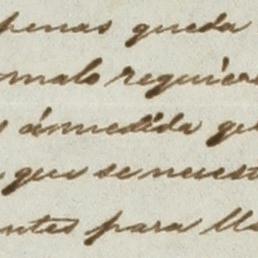 penas queda
omalo requier
s ámedida que
que se necest
ntes para lla